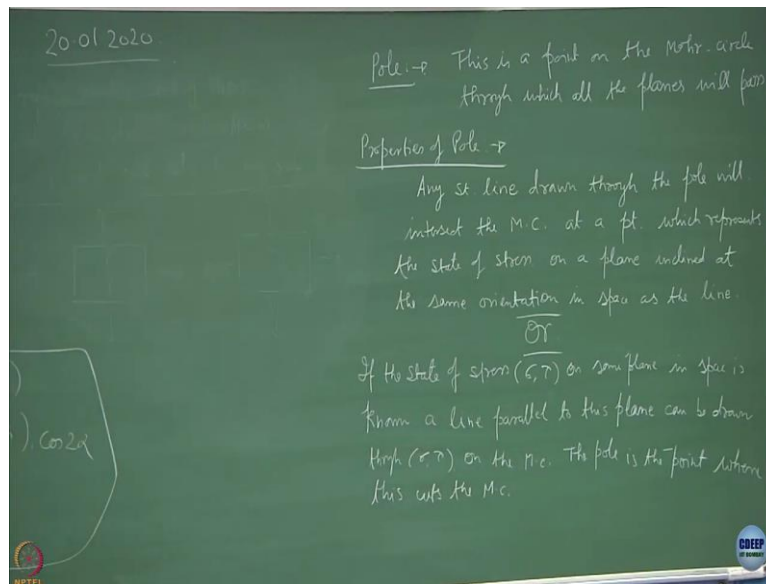 20.01.2020
Pole :→ This is a point on the Mohr-circle
through which all the planes will pass
Properties of Pole →
Any st. line drawn through the pole will
intersect the M.C. at a pt. which represents
the state of stress on a plane inclined at
the same orientation in spac as the line.
Or
If the state of stress (σ,τ) on some plane in spac is
known a line parallel to this plane can be drawn
through (σ,τ) on the M.C. The pole is the point where
this cuts the M.C.
)
). Cos2α
NPTEL
CDEEP
IIT BOMBAY